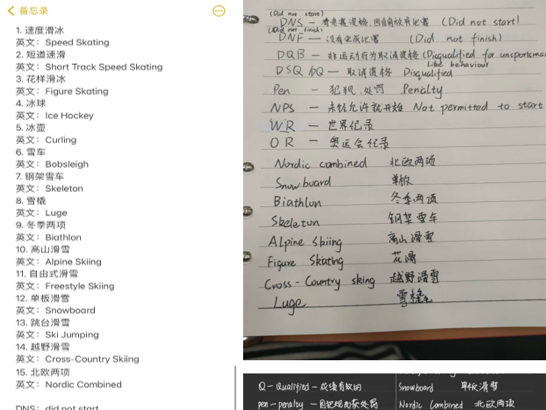 备忘录
1. 速度滑冰
英文：Speed Skating
2. 短道速滑
英文：Short Track Speed Skating
3. 花样滑冰
英文：Figure Skating
4. 冰球
英文：Ice Hockey
5. 冰壶
英文：Curling
6. 雪车
英文：Bobsleigh
7. 钢架雪车
英文：Skeleton
8. 雪橇
英文：Luge
9. 冬季两项
英文：Biathlon
10. 高山滑雪
英文：Alpine Skiing
11. 自由式滑雪
英文：Freestyle Skiing
12. 单板滑雪
英文：Snowboard
13. 跳台滑雪
英文：Ski Jumping
14. 越野滑雪
英文：Cross-Country Skiing
15. 北欧两项
英文：Nordic Combined
DNS: did not start
(Did not start)
DNS — (Did not start)
(Did not finish)
DNF — (Did not finish)
DQB — (Disqualified for unsportsman
like behaviour
DSQ DQ — 取消资格 Disqualified
Pen — 犯规,处罚 Penalty
NPS — 未经允许就开始 Not permitted to start
WR — 世界纪录
OR — 奥运会纪录
Nordic combined 北欧两项
Snowboard 单板
Biathlun 冬季两项
Skeletun 钢架雪车
Alpine Skiing 高山滑雪
Figure Skating 花滑
Cross-Country sking 越野滑雪
Luge 雪橇
Q — Qualified — 成绩有效的 Snowboard 单板滑雪
pen — penalty — Nordic Combined 北欧两项